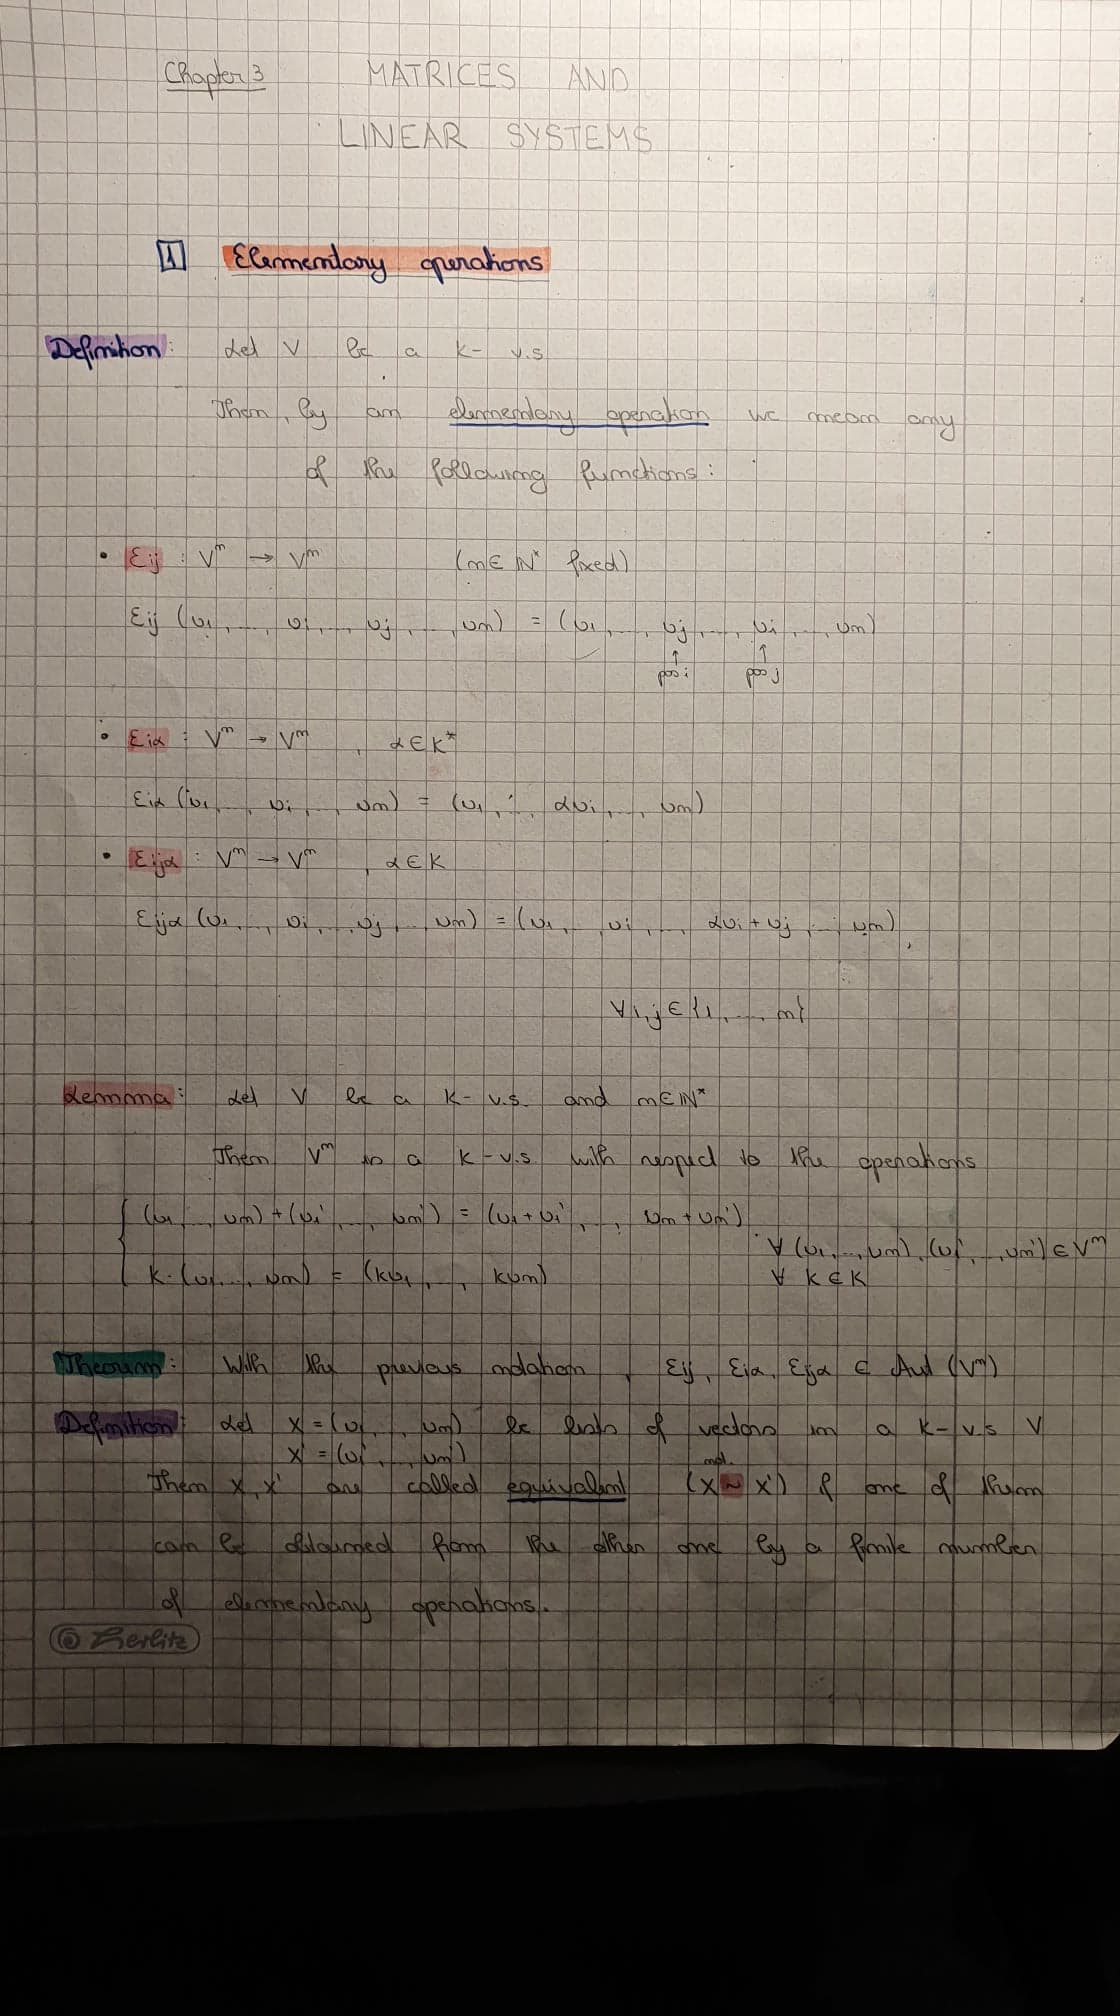 Chapter 3 MATRICES AND
LINEAR SYSTEMS
1 Elementary operations
Definition: Let V be a K- v.s
Then, by an elementary operation we mean any
of the following functions:
• Eij : Vⁿ → Vⁿ (n ∈ N* fixed)
Eij (v1, ..., vi, ..., vj, ..., vn) = (v1, ..., vj, ..., vi, ..., vn)
↑ ↑
pos i pos j
• Eiα : Vⁿ → Vⁿ , α ∈ K*
Eiα (v1, ..., vi, ..., vn) = (v1, ..., αvi, ..., vn)
• Eijα : Vⁿ → Vⁿ , α ∈ K
Eijα (v1, ..., vi, ..., vj, ..., vn) = (v1, ..., vi, ..., αvi + vj, ..., vn),
∀ i, j ∈ {1, ..., n}
Lemma: Let V be a K- v.s. and n ∈ N*
Then Vⁿ is a K-v.s with respect to the operations
{ (v1, ..., vn) + (v1', ..., vn') = (v1 + v1', ..., vn + vn')
∀ (v1, ..., vn), (v1', ..., vn') ∈ Vⁿ
k·(v1, ..., vn) = (kv1, ..., kvn) ∀ k ∈ K
Theorem: With the previous notation, Eij, Eiα, Eijα ∈ Aut (Vⁿ)
Definition: Let X = (v1, ..., vn) be lists of vectors in a K- v.s V
X' = (v1', ..., vn')
not.
Then X, X' are called equivalent (X ~ X') if one of them
can be obtained from the other one by a finite number
of elementary operations.
© Herlitz